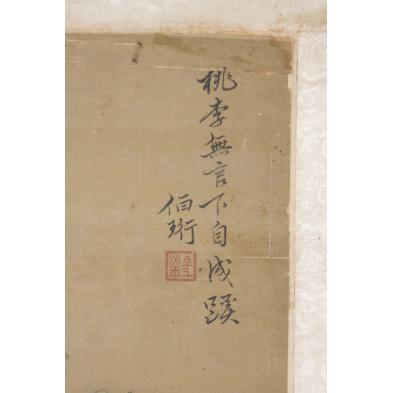 桃李無言下自成蹊
伯珩